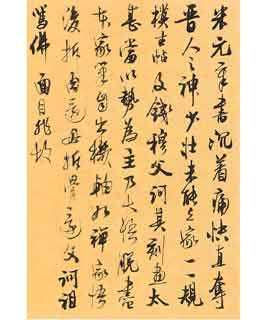 米元章書沉着痛快直奪
晉人之神少壯未能立家一一規
模古帖及錢穆父訶其刻畫太
甚當以勢為主乃大悟脫盡
本家筆自出機軸如禪家悟
後拆肉還母拆骨還父訶祖
罵佛面目非故